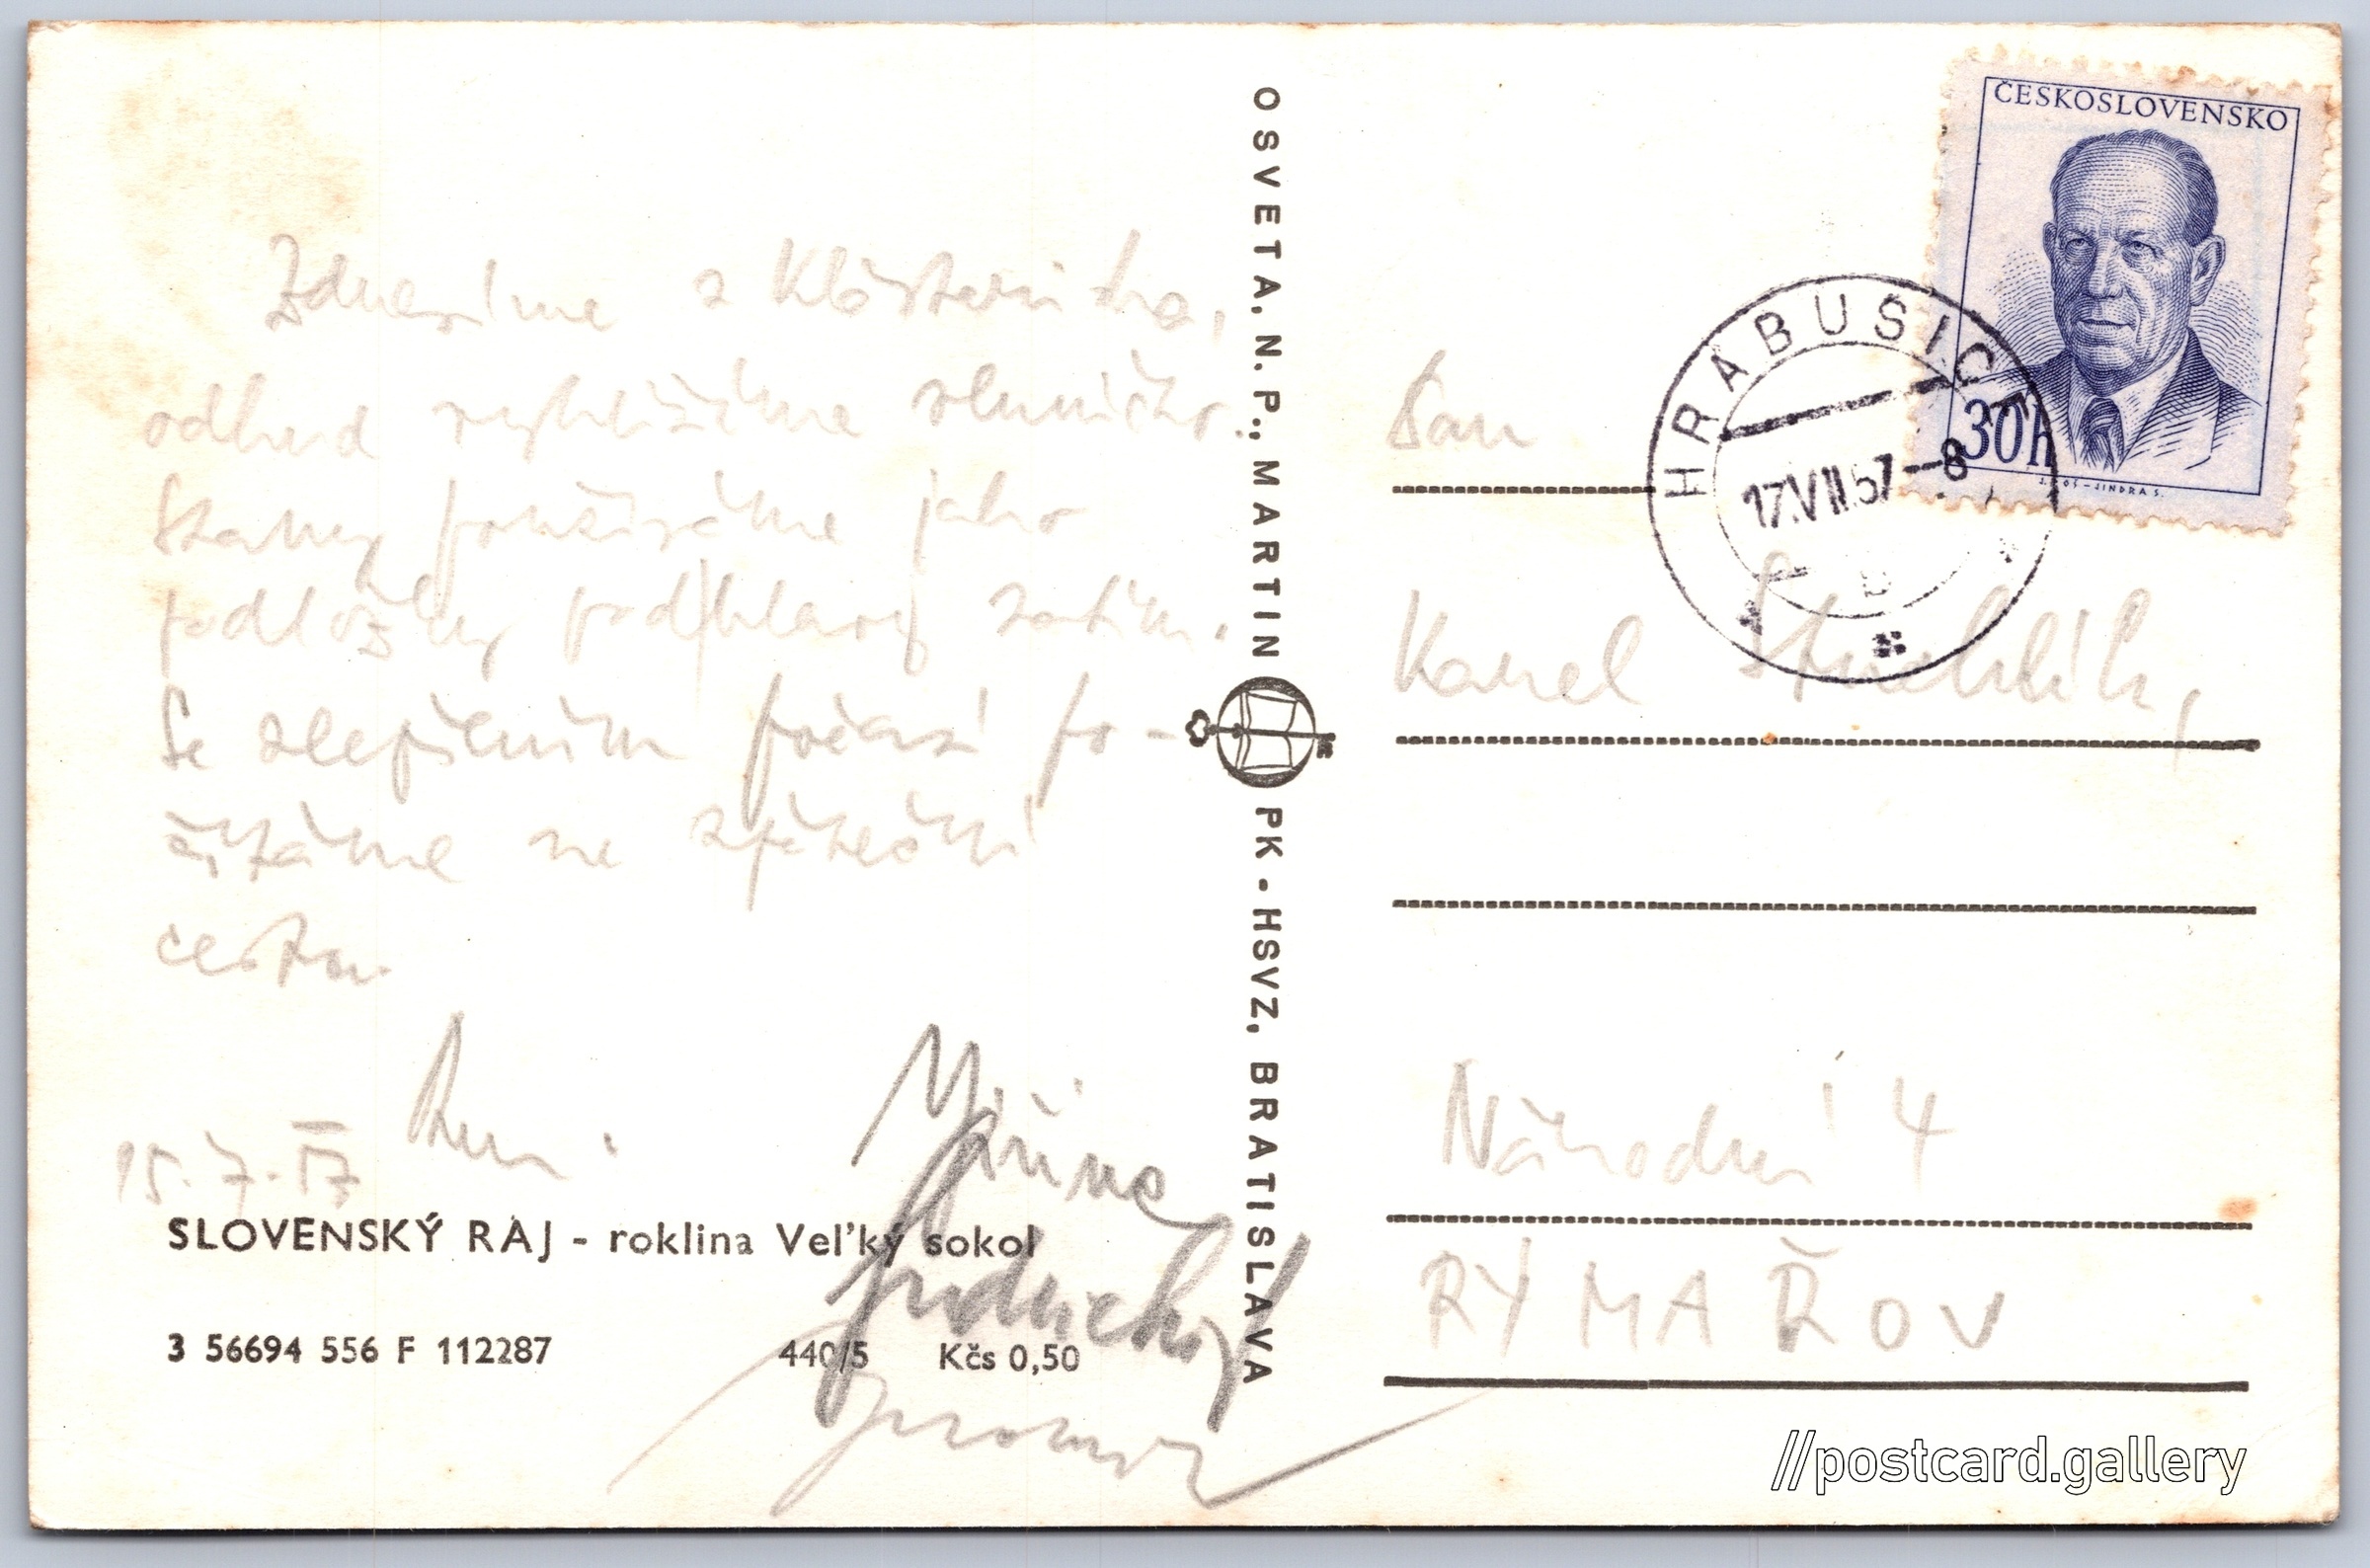 Zdravíme z Kláštoriska,
odkud vyhlížíme sluníčko.
Stany používáme jako
podložky pod hlavy zatím.
Se zlepšením počasí po-
čítáme na zpáteční
cestu.
15. 7. 57
Jiřina
Jaromír
SLOVENSKÝ RAJ - roklina Veľký sokol
3 56694 556 F 112287 440/5 Kčs 0,50
OSVETA, N. P., MARTIN
PK - HSVZ, BRATISLAVA
ČESKOSLOVENSKO
30h
HRABUŠICE
17.VII.57-8
Pan
Karel
Národní 4
RÝMAŘOV
//postcard.gallery